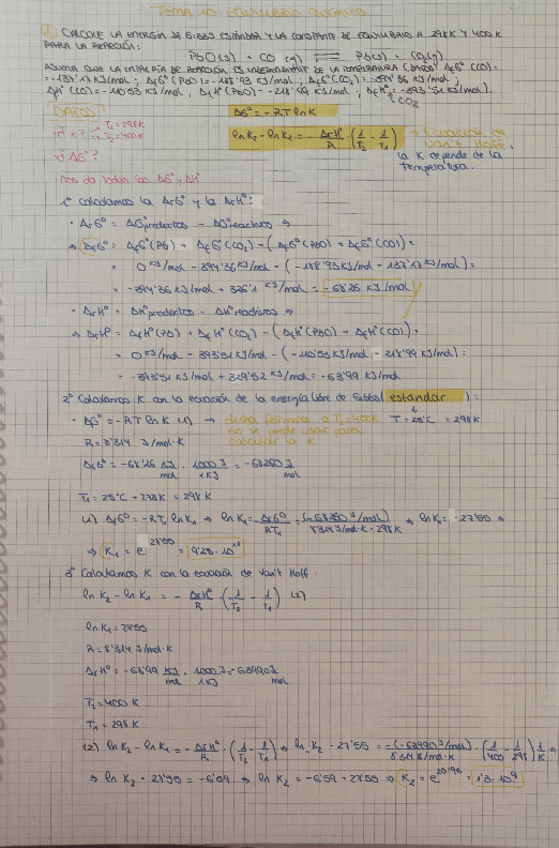 TEMA 10: EQUILIBRIO QUÍMICO
① CALCULE LA ENERGÍA DE GIBBS ESTÁNDAR Y LA CONSTANTE DE EQUILIBRIO A 298K Y 400K
PARA LA REACCIÓN:
PbO(s) + CO(g) ⇌ Pb(s) + CO₂(g)
ASUMA QUE LA ENTALPÍA DE REACCIÓN ES INDEPENDIENTE DE LA TEMPERATURA (DATOS: ΔfG°(CO) =
= -137'17 KJ/mol; ΔfG°(PbO) = -188'93 KJ/mol; ΔfG°(CO₂) = -394'36 KJ/mol;
ΔfH°(CO) = -110'53 KJ/mol, ΔfH°(PbO) = -218'99 KJ/mol; ΔfH° = -393'51 KJ/mol.
CO₂
DATOS:
¿K? T₁ = 298K
T₂ = 400K
¿ΔG°?
Nos da todas las ΔG° y ΔH°
ΔG° = -RT lnK
lnK₂ - lnK₁ = - ΔrH°/R · (1/T₂ - 1/T₁) → Ecuación de
Van't Hoff.
la K depende de la
temperatura.
1º Calculamos la ΔrG° y la ΔrH°:
· ΔrG° = ΔG°productos - ΔG°reactivos ⇒
⇒ ΔrG° = ΔfG°(Pb) + ΔfG°(CO₂) - (ΔfG°(PbO) + ΔfG°(CO)) =
= 0 KJ/mol - 394'36 KJ/mol - (-188'93 KJ/mol - 137'17 KJ/mol) =
= -394'36 KJ/mol + 326'1 KJ/mol = -68'26 KJ/mol
· ΔrH° = ΔH°productos - ΔH°reactivos ⇒
⇒ ΔrH° = ΔfH°(Pb) + ΔfH°(CO₂) - (ΔfH°(PbO) + ΔfH°(CO)) =
= 0 KJ/mol - 393'51 KJ/mol - (-110'53 KJ/mol - 218'99 KJ/mol) =
= -393'51 KJ/mol + 329'52 KJ/mol = -63'99 KJ/mol
2º Calculamos K con la ecuación de la energía libre de Gibbs (estándar):
· ΔG° = -RT lnK (1) → dicha fórmula a T₂ = 400K T = 25°C = 298K
no se puede usar para
calcular la K
R = 8'314 J/mol·K
ΔrG° = -68'26 KJ/mol · 1000J/1KJ = -68260 J/mol
T₁ = 25°C + 273K = 298K
(1) ΔrG° = -RT₁ lnK₁ ⇒ lnK₁ = -ΔrG°/RT₁ = -(-68260 J/mol)/8'314 J/mol·K · 298K ⇒ lnK₁ = 27'55 ⇒
⇒ K₁ = e^27'55 = 9'25·10¹¹
3º Calculamos K con la ecuación de Van't Hoff:
lnK₂ - lnK₁ = - ΔrH°/R · (1/T₂ - 1/T₁) (2)
lnK₁ = 27'55
R = 8'314 J/mol·K
ΔrH° = -63'99 KJ/mol · 1000J/1KJ = -63990 J/mol
T₂ = 400K
T₁ = 298K
(2) lnK₂ - lnK₁ = - ΔrH°/R · (1/T₂ - 1/T₁) ⇒ lnK₂ - 27'55 = -(-63990 J/mol)/8'314 J/mol·K · (1/400 - 1/298) 1/K ⇒
⇒ lnK₂ - 27'55 = -6'59 ⇒ lnK₂ = -6'59 + 27'55 ⇒ K₂ = e^20'96 = 1'3·10⁹